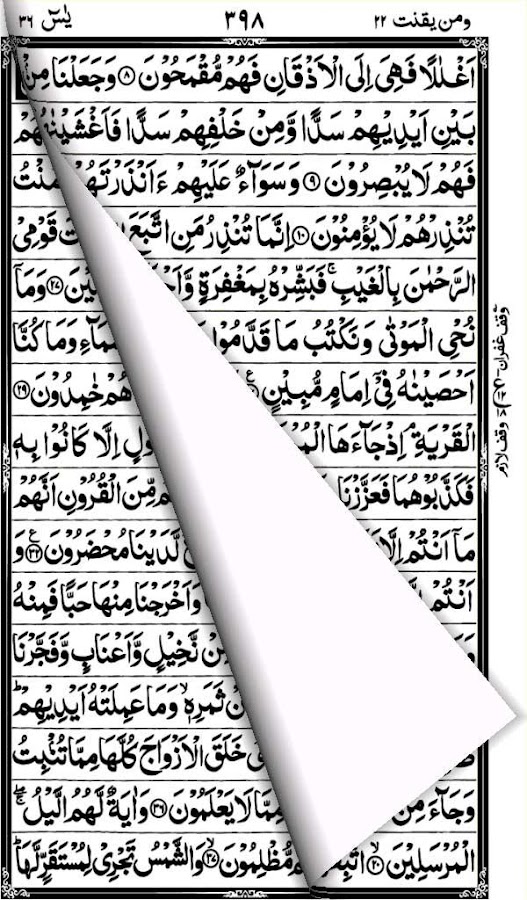 ومن يقنت ٢٢ ٣٩٨ يٰسٓ ٣٦
اَغْلٰلًا فَهِىَ اِلَى الْاَذْقَانِ فَهُمْ مُّقْمَحُوْنَ ۝٨ وَجَعَلْنَا مِنْۢ
بَيْنِ اَيْدِيْهِمْ سَدًّا وَّمِنْ خَلْفِهِمْ سَدًّا فَاَغْشَيْنٰهُمْ
فَهُمْ لَا يُبْصِرُوْنَ ۝٩ وَسَوَآءٌ عَلَيْهِمْ ءَاَنْذَرْتَهُمْ مَنْتُ
تُنْذِرْهُمْ لَا يُؤْمِنُوْنَ ۝١٠ اِنَّمَا تُنْذِرُ مَنِ اتَّبَعَ تَ قَوْمِىْ
الرَّحْمٰنَ بِالْغَيْبِ ۚ فَبَشِّرْهُ بِمَغْفِرَةٍ وَّاَ يْنَ ۝٢٧ وَمَآ
نُحْىِ الْمَوْتٰى وَنَكْتُبُ مَا قَدَّمُوْا مَآءِ وَمَا كُنَّا
اَحْصَيْنٰهُ فِىْٓ اِمَامٍ مُّبِيْنٍ هُمْ خٰمِدُوْنَ ۝٢٩
الْقَرْيَةِ ۘ اِذْ جَآءَهَا الْمُرْ وْلٍ اِلَّا كَانُوْا بِهٖ
فَكَذَّبُوْهُمَا فَعَزَّزْنَا مْ مِّنَ الْقُرُوْنِ اَنَّهُمْ
مَآ اَنْتُمْ اِلَّا لَّدَيْنَا مُحْضَرُوْنَ ۝٣٢ وَ
اَنْتُمْ وَاَخْرَجْنَا مِنْهَا حَبًّا فَمِنْهُ
نْ نَّخِيْلٍ وَّاَعْنَابٍ وَّفَجَّرْنَا
نْ ثَمَرِهٖ ۙ وَمَا عَمِلَتْهُ اَيْدِيْهِمْ ؕ
خَلَقَ الْاَزْوَاجَ كُلَّهَا مِمَّا تُنْۢبِتُ
وَجَآءَ مِنْ مِمَّا لَا يَعْلَمُوْنَ ۝٣٦ وَاٰيَةٌ لَّهُمُ الَّيْلُ ۚۖ
الْمُرْسَلِيْنَ ۝٢٠ اتَّبِعُ مْ مُّظْلِمُوْنَ ۝٣٧ وَالشَّمْسُ تَجْرِىْ لِمُسْتَقَرٍّ لَّهَا ؕ
وقف غفران
وقف لازم